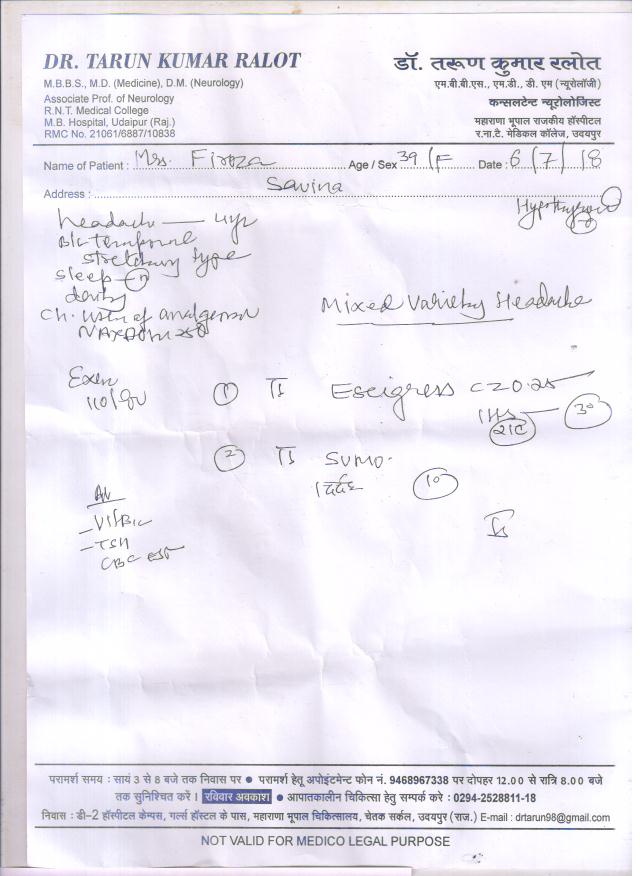 DR. TARUN KUMAR RALOT
M.B.B.S., M.D. (Medicine), D.M. (Neurology)
Associate Prof. of Neurology
R.N.T. Medical College
M.B. Hospital, Udaipur (Raj.)
RMC No. 21061/6887/10838
डॉ. तरूण कुमार रलोत
एम.बी.बी.एस., एम.डी., डी. एम (न्यूरोलॉजी)
कन्सलटेन्ट न्यूरोलोजिस्ट
महाराणा भूपाल राजकीय हॉस्पीटल
र.ना.टे. मेडिकल कॉलेज, उदयपुर
Name of Patient : Mrs. Firoza Age / Sex 39/F Date : 6/7/18
Address : Savina
headache — 4yr
Bitemporal
type
sleep
Ch. use of
Mixed Variety Headache
110/80
① T Escigress 0.25
1HS 30
रात
② T SUMO
10
TSH
CBC ESR
परामर्श समय : सायं 3 से 8 बजे तक निवास पर ● परामर्श हेतू अपोइंटमेन्ट फोन नं. 9468967338 पर दोपहर 12.00 से रात्रि 8.00 बजे
तक सुनिश्चित करें । रविवार अवकाश ● आपातकालीन चिकित्सा हेतु सम्पर्क करे : 0294-2528811-18
निवास : डी-2 हॉस्पीटल केम्पस, गर्ल्स हॉस्टल के पास, महाराणा भूपाल चिकित्सालय, चेतक सर्कल, उदयपुर (राज.) E-mail : drtarun98@gmail.com
NOT VALID FOR MEDICO LEGAL PURPOSE